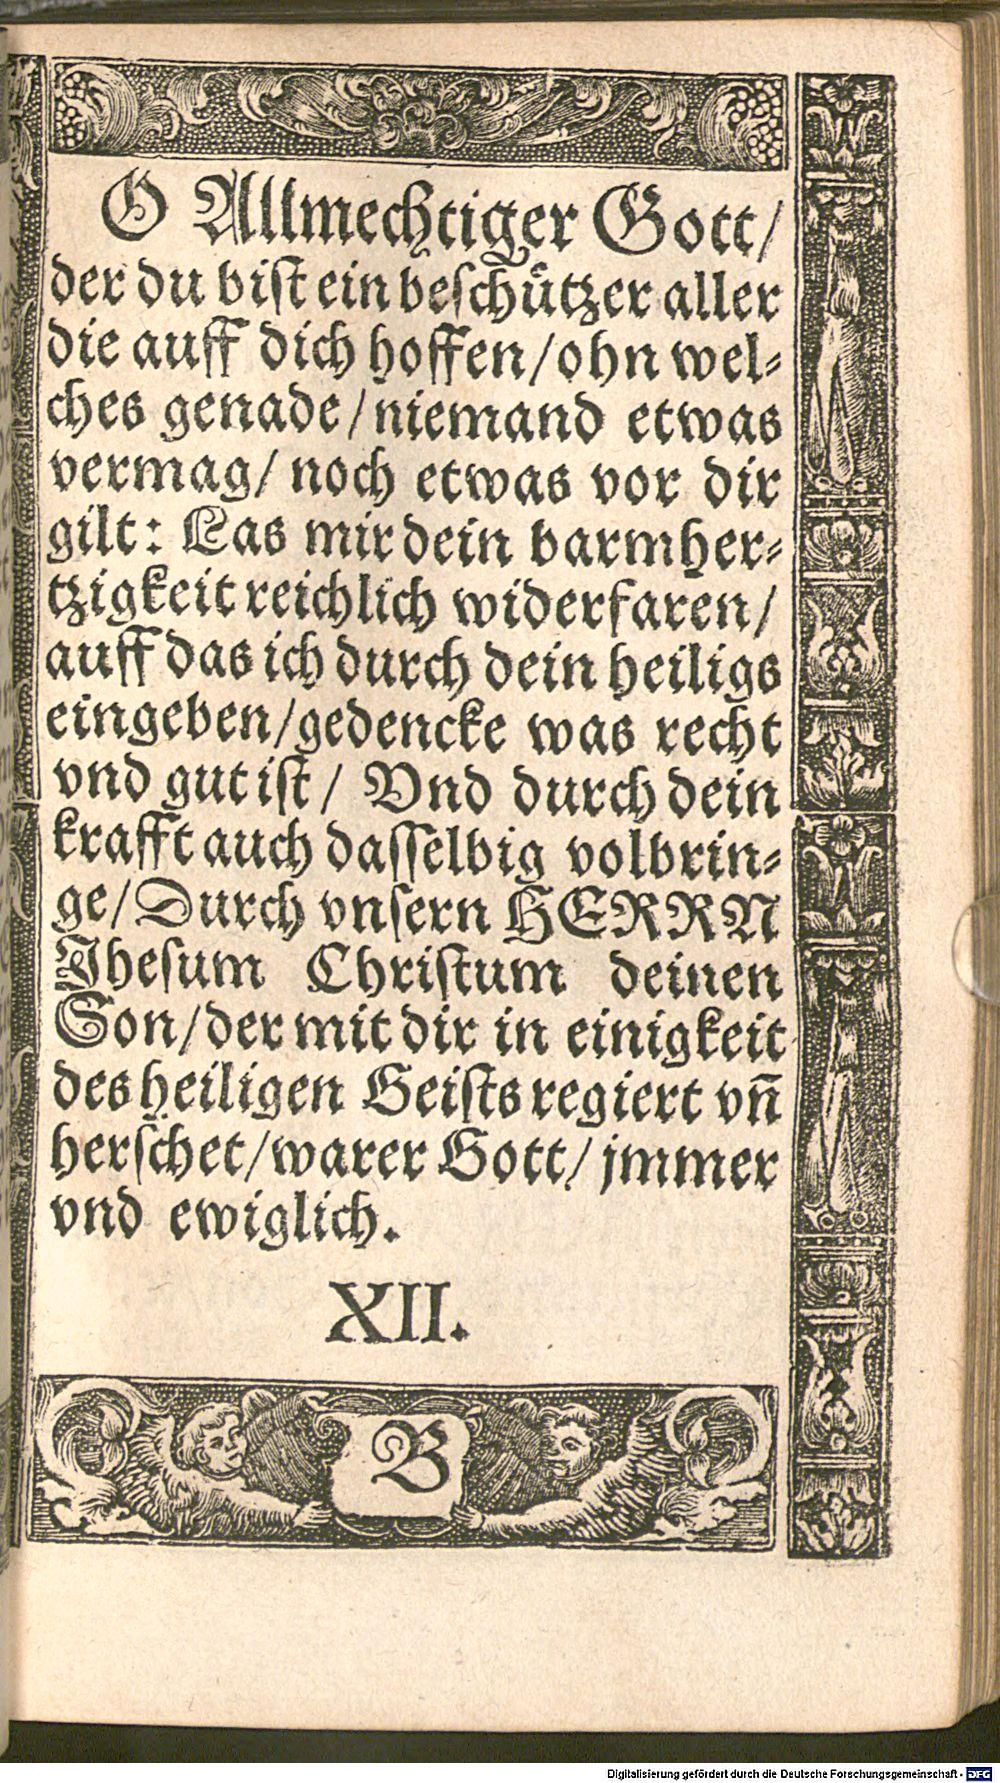 O Allmechtiger Gott/
der du bist ein beschuͤtzer aller
die auff dich hoffen/ohn wel⸗
ches genade/niemand etwas
vermag/ noch etwas vor dir
gilt: Las mir dein barmher⸗
tzigkeit reichlich widerfaren/
auff das ich durch dein heiligs
eingeben/gedencke was recht
vnd gut ist/ Vnd durch dein
krafft auch dasselbig volbrin⸗
ge/Durch vnsern HERRN
Jhesum Christum deinen
Son/der mit dir in einigkeit
des heiligen Geists regiert vn̄
herschet/warer Gott/ jmmer
vnd ewiglich.
XII.
B
Digitalisierung gefördert durch die Deutsche Forschungsgemeinschaft - DFG